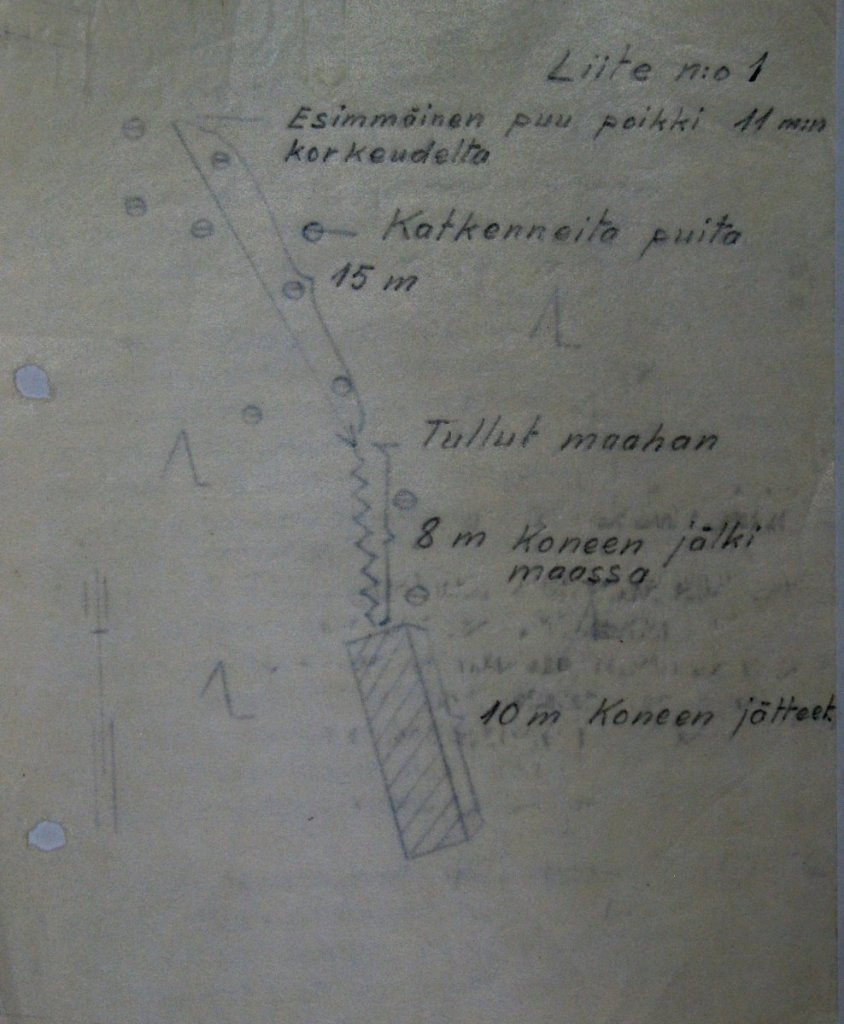 Liite n:o 1
Esimmäinen puu poikki 11 m:n
korkeudelta
Katkenneita puita
15 m
Tullut maahan
8 m Koneen jälki
maassa
10 m Koneen jätteet